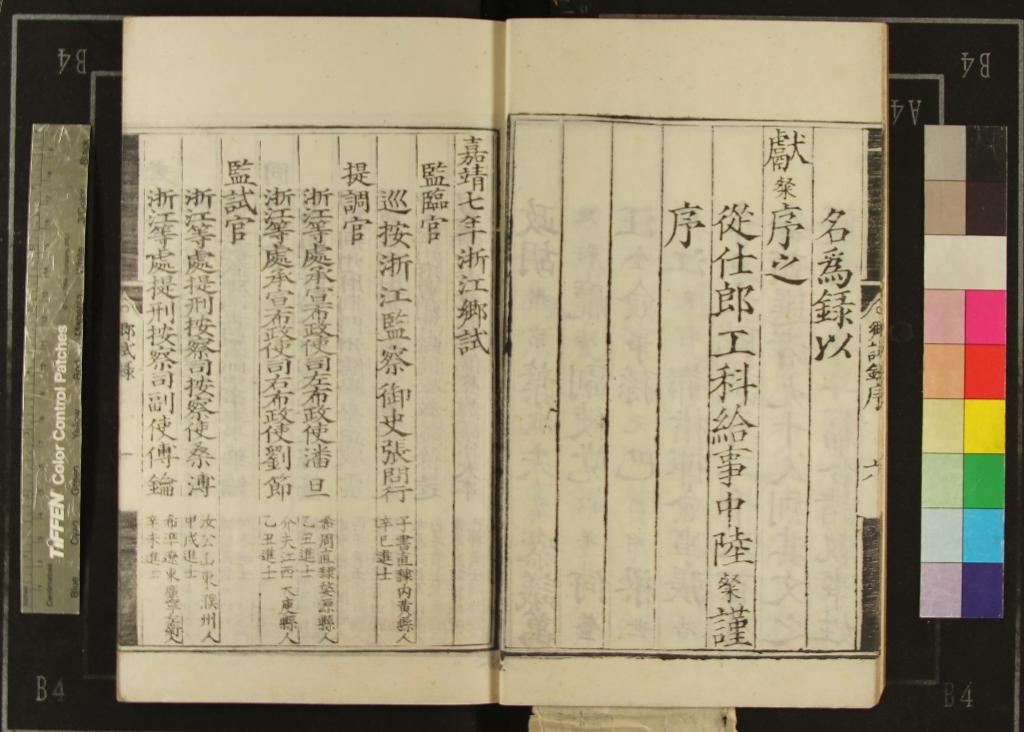 名為錄以
獻粲序之
從仕郎工科給事中陸粲謹
序
鄉試錄序
六
嘉靖七年浙江鄉試
監臨官
巡按浙江監察御史張問行
子書直隸內黃縣人
辛巳進士
提調官
浙江等處承宣布政使司左布政使潘旦
希周直隸婺源縣人
乙丑進士
浙江等處承宣布政使司右布政使劉節
介夫江西大庾縣人
乙丑進士
監試官
浙江等處提刑按察司按察使桑溥
汝公山東濮州人
甲戌進士
浙江等處提刑按察司副使傅鑰
希準遼東廣寧左衛人
辛未進士
鄉試錄
一
TIFFEN Color Control Patches
B4
B4
A4
B4
B4